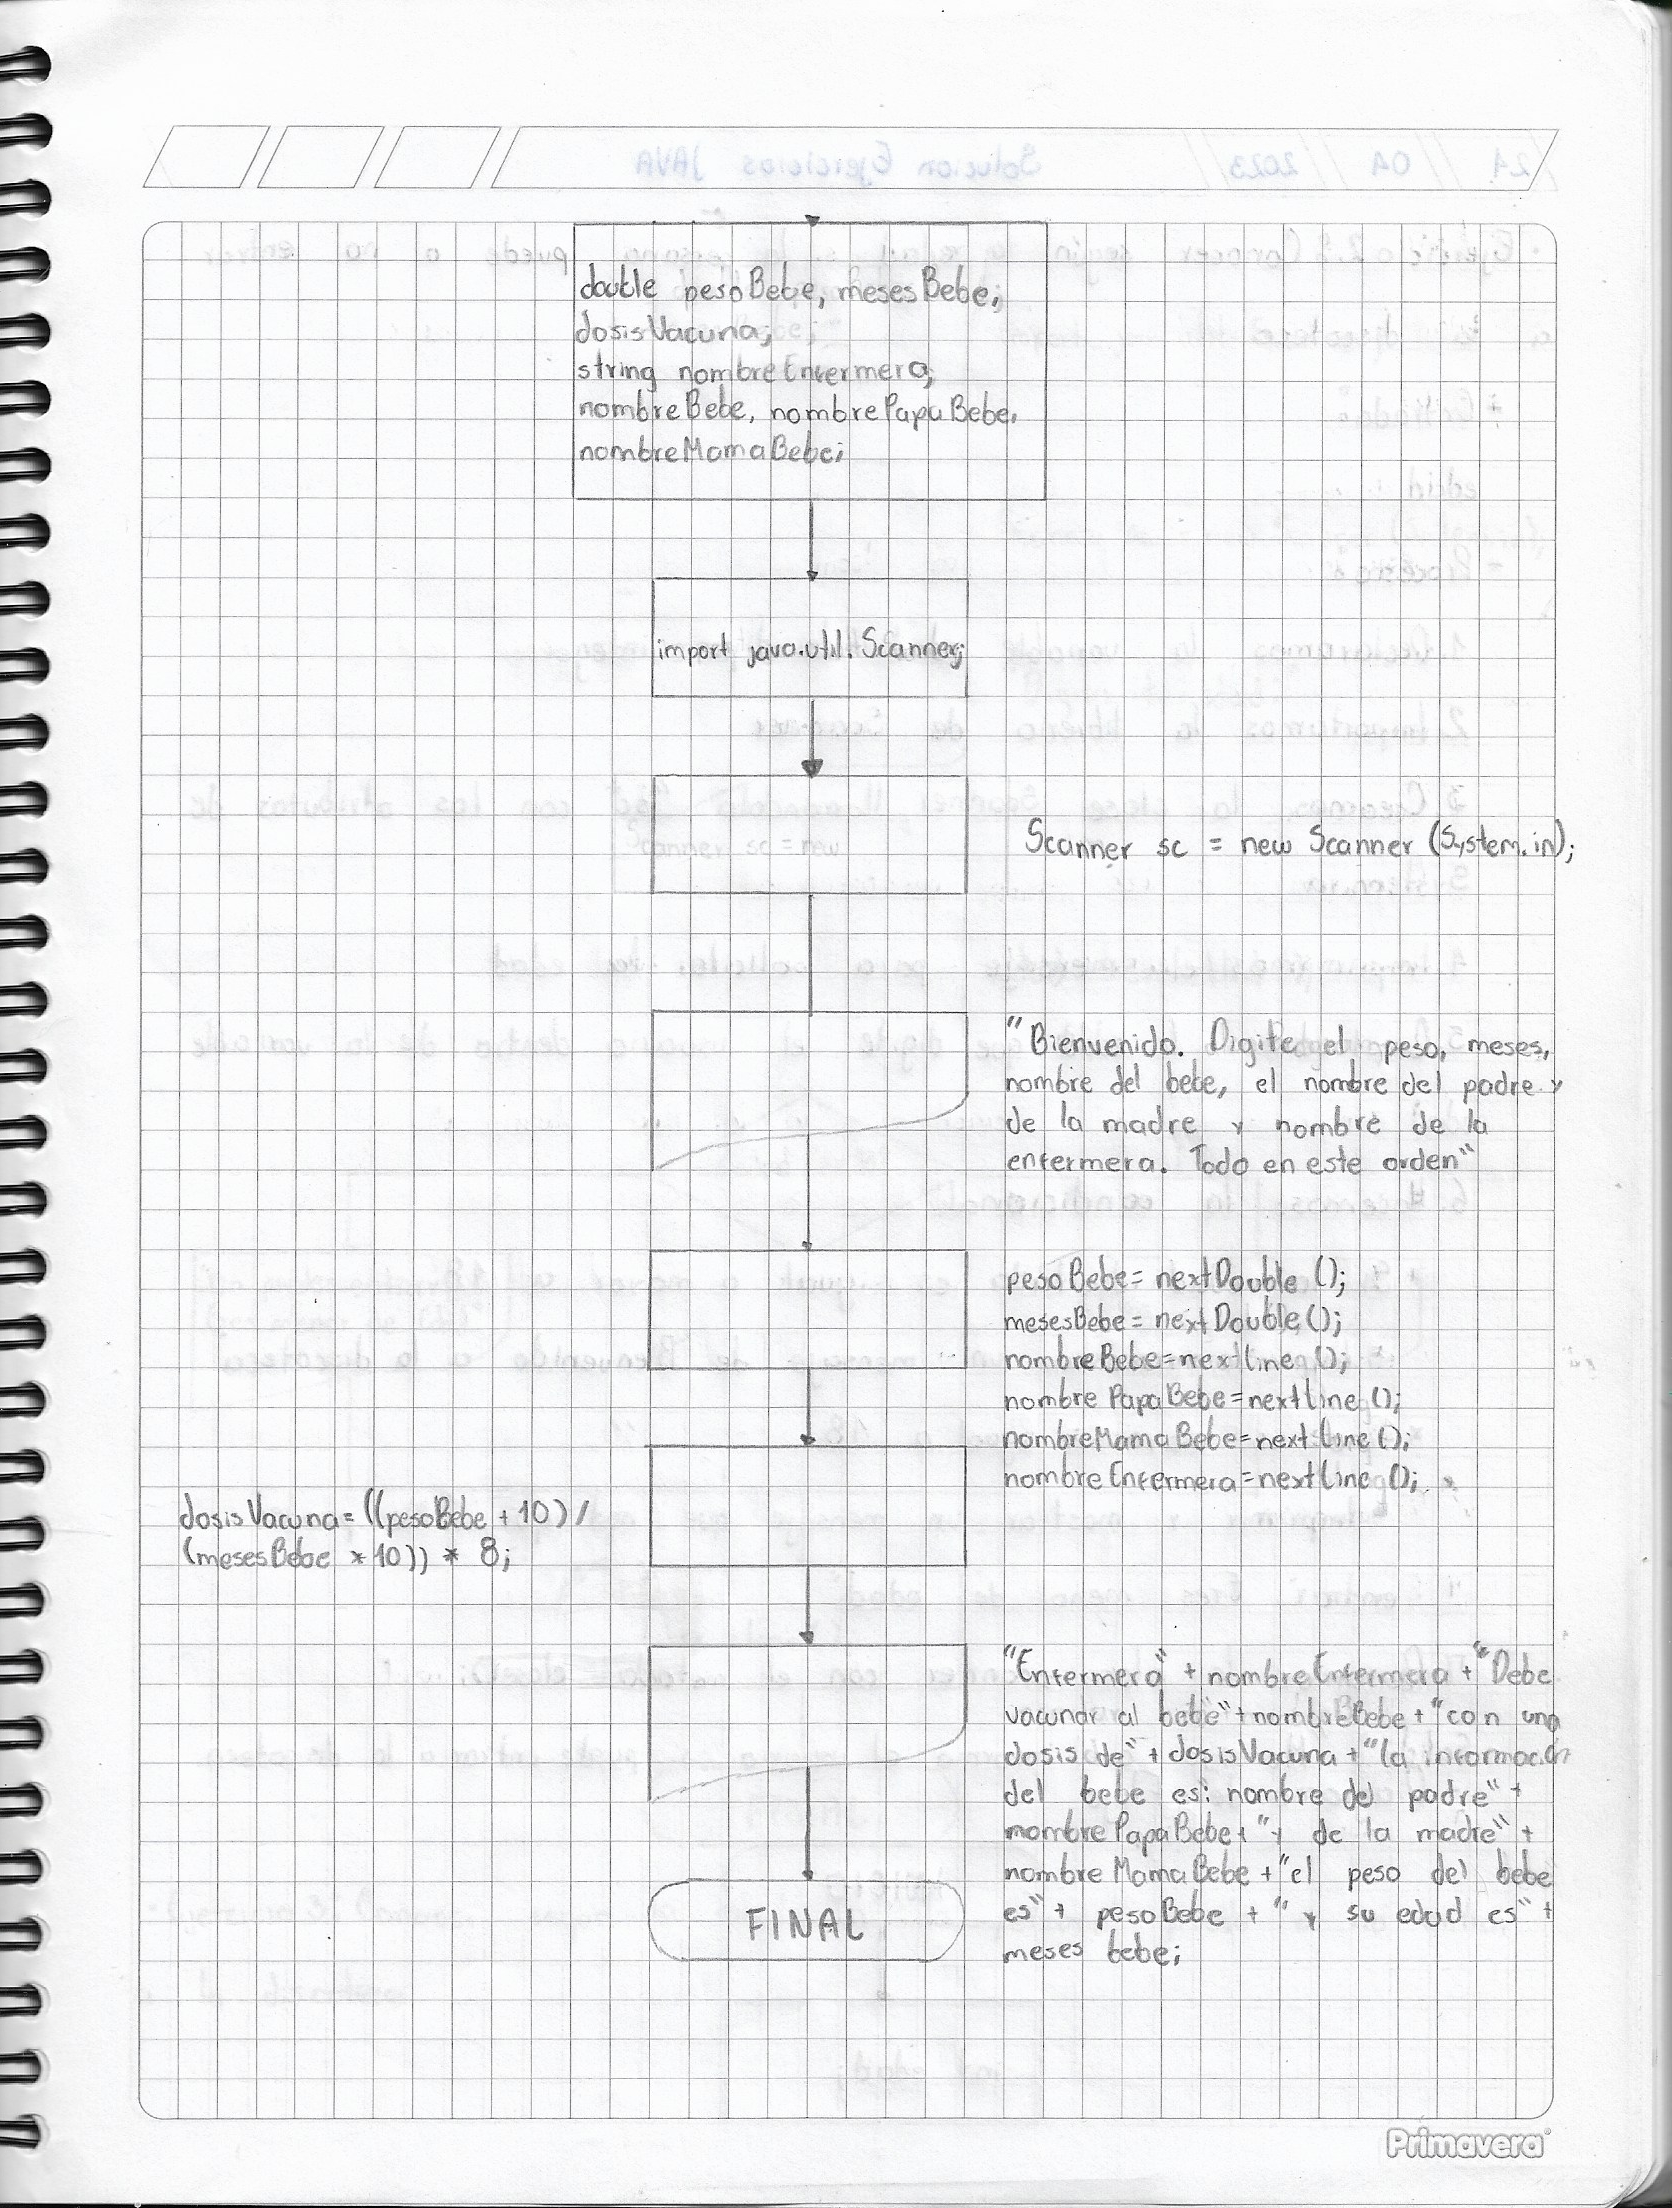 double pesoBebe, mesesBebe,
dosisVacuna;
string nombreEnfermera,
nombreBebe, nombrePapaBebe,
nombreMamaBebe;
import java.util.Scanner;
Scanner sc = new Scanner (System.in);
"Bienvenido. Digite el peso, meses,
nombre del bebe, el nombre del padre y
de la madre y nombre de la
enfermera. Todo en este orden"
pesoBebe= nextDouble ();
mesesBebe= nextDouble();
nombreBebe=nextline ();
nombre PapaBebe=nextline ();
nombreMamaBebe=nextline ();
nombreEnfermera=nextline ();
dosisVacuna= ((pesoBebe + 10) /
(mesesBebe * 10)) * 8;
"Enfermera" + nombreEnfermera + "Debe
vacunar al bebe" + nombreBebe + "con una
dosis de" + dosisVacuna + "la información
del bebe es: nombre del padre" +
nombrePapaBebe + "y de la madre" +
nombreMamaBebe + "el peso del bebe
es" + pesoBebe + "y su edad es" +
meses bebe;
FINAL
Primavera